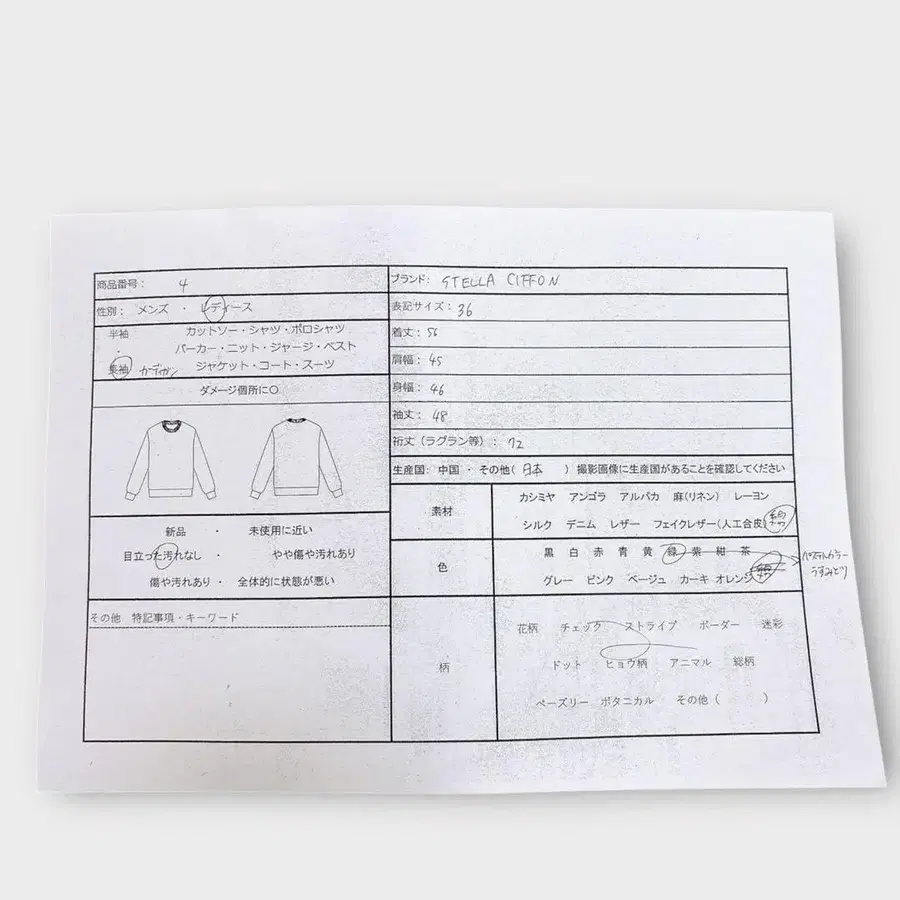 商品番号： 4
性別： メンズ ・ レディース
半袖
・
長袖 カーディガン
カットソー・シャツ・ポロシャツ
パーカー・ニット・ジャージ・ベスト
ジャケット・コート・スーツ
ダメージ個所に〇
新品 ・ 未使用に近い
目立った汚れなし ・ やや傷や汚れあり
傷や汚れあり ・ 全体的に状態が悪い
その他 特記事項・キーワード
ブランド: STELLA CIFFON
表記サイズ： 36
着丈： 56
肩幅： 45
身幅： 46
袖丈： 48
裄丈（ラグラン等）： 72
生産国： 中国 ・ その他( 日本 ) 撮影画像に生産国があることを確認してください
素材
カシミヤ アンゴラ アルパカ 麻(リネン) レーヨン
シルク デニム レザー フェイクレザー(人工合皮) 綿
色
黒 白 赤 青 黄 緑 紫 紺 茶
グレー ピンク ベージュ カーキ オレンジ
パステルカラー
うすみどり
柄
花柄 チェック ストライプ ボーダー 迷彩
ドット ヒョウ柄 アニマル 総柄
ペーズリー ボタニカル その他（ ）